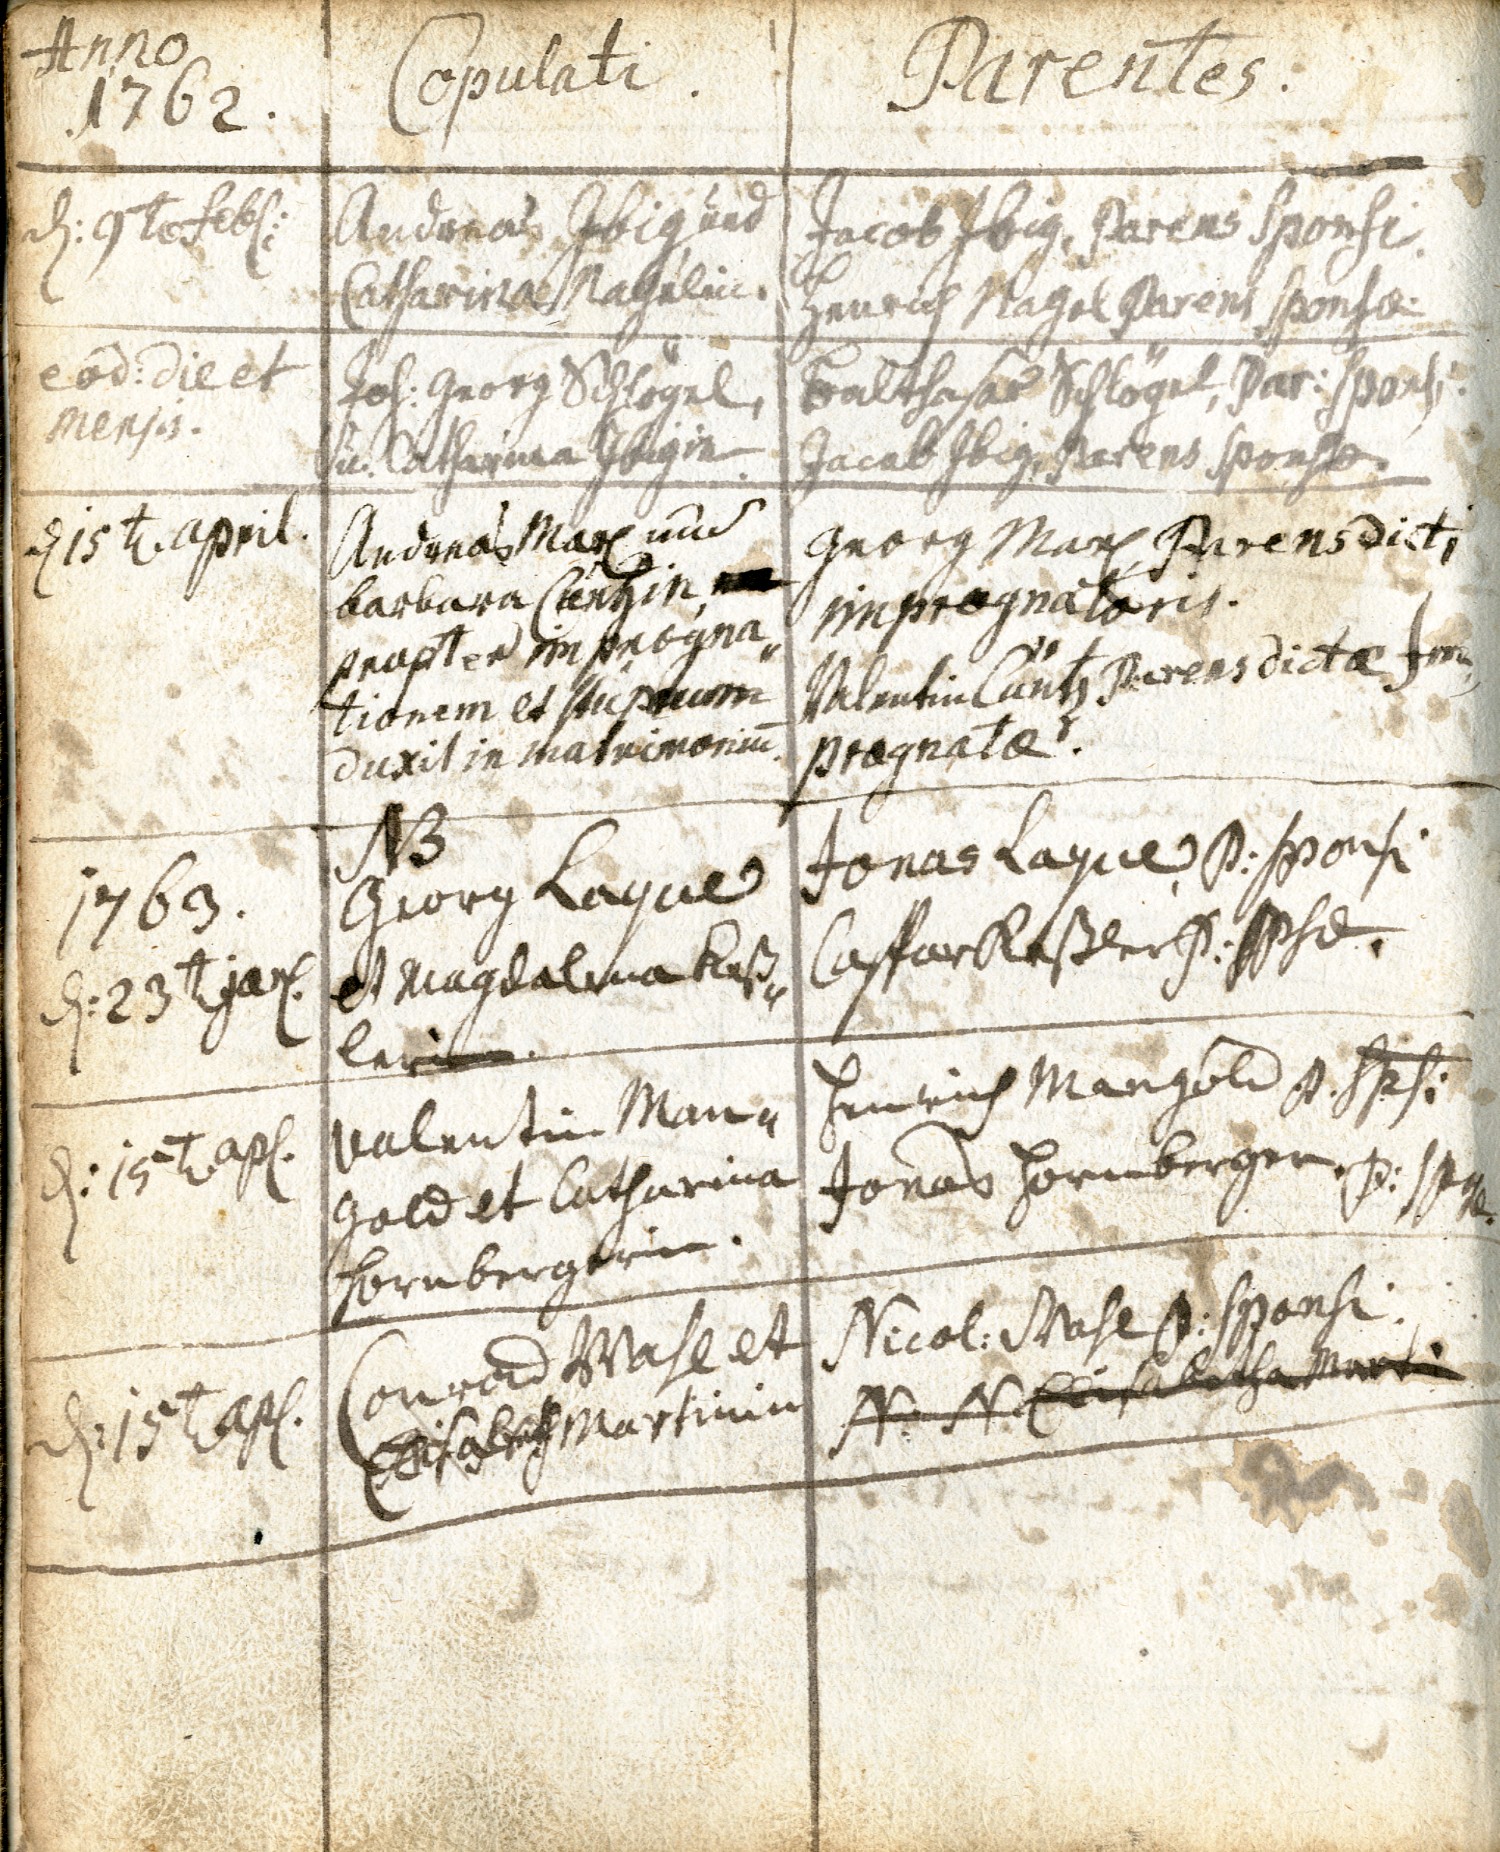 Anno
1762.
Copulati.
Parentes.
d: 9te Febr:
Andreas Ibig und
Catharina Nagelin.
Jacob Ibig, Parens Sponsi.
Henrich Nagel Parens Sponsæ.
eod: die et
mensis.
Joh: Georg Schlögel,
u. Catharina Ibigin
Balthasar Schlögel, Par: Sponsi.
Jacob Ibig, Parens Sponsæ.
d 15t. april.
Andreas Marx und
barbara Cüntzin,
propter imprægna„
tionem et stuprum
duxit in matrimoniū.
Georg Marx, Parens dicti
imprægnatoris.
Valentin Cüntz Parens dictæ Im„
prægnatæ.
1763.
d: 23t jan.
NB
Georg Laque
et Magdalena Keß„
lerin.
Jonas Laque, P: sponsi
Casspar Keßler P: spsæ.
d: 15t. apl.
Valentin Man„
gold et Catharina
Hornbergerin.
Henrich Mangold P. spsi
Jonas Hornberger, P: spsæ.
d: 15t apl.
Conrad Wahl et
Elisabeth Martinin
Nicol: Wahl P: sponsi.
N. N. Elisabetha Marti